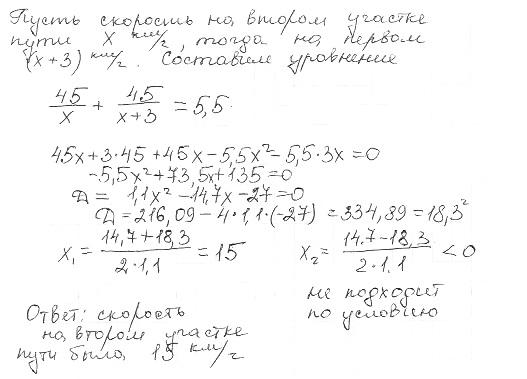 Пусть скорость на втором участке
пути x км/г, тогда на первом
(x+3) км/г. Составим уровнение
45/x + 45/(x+3) = 5,5
45x+3·45+45x-5,5x²-5,5·3x=0
-5,5x²+73,5x+135=0
D = 1,1x²-14,7x-27=0
D=216,09-4·1,1·(-27) = 334,89=18,3²
x₁ = (14,7+18,3)/(2·1,1) = 15 x₂ = (14.7-18,3)/(2·1.1) < 0
не подходит
по условию
Ответ: скорость
на втором участке
пути была 15 км/г